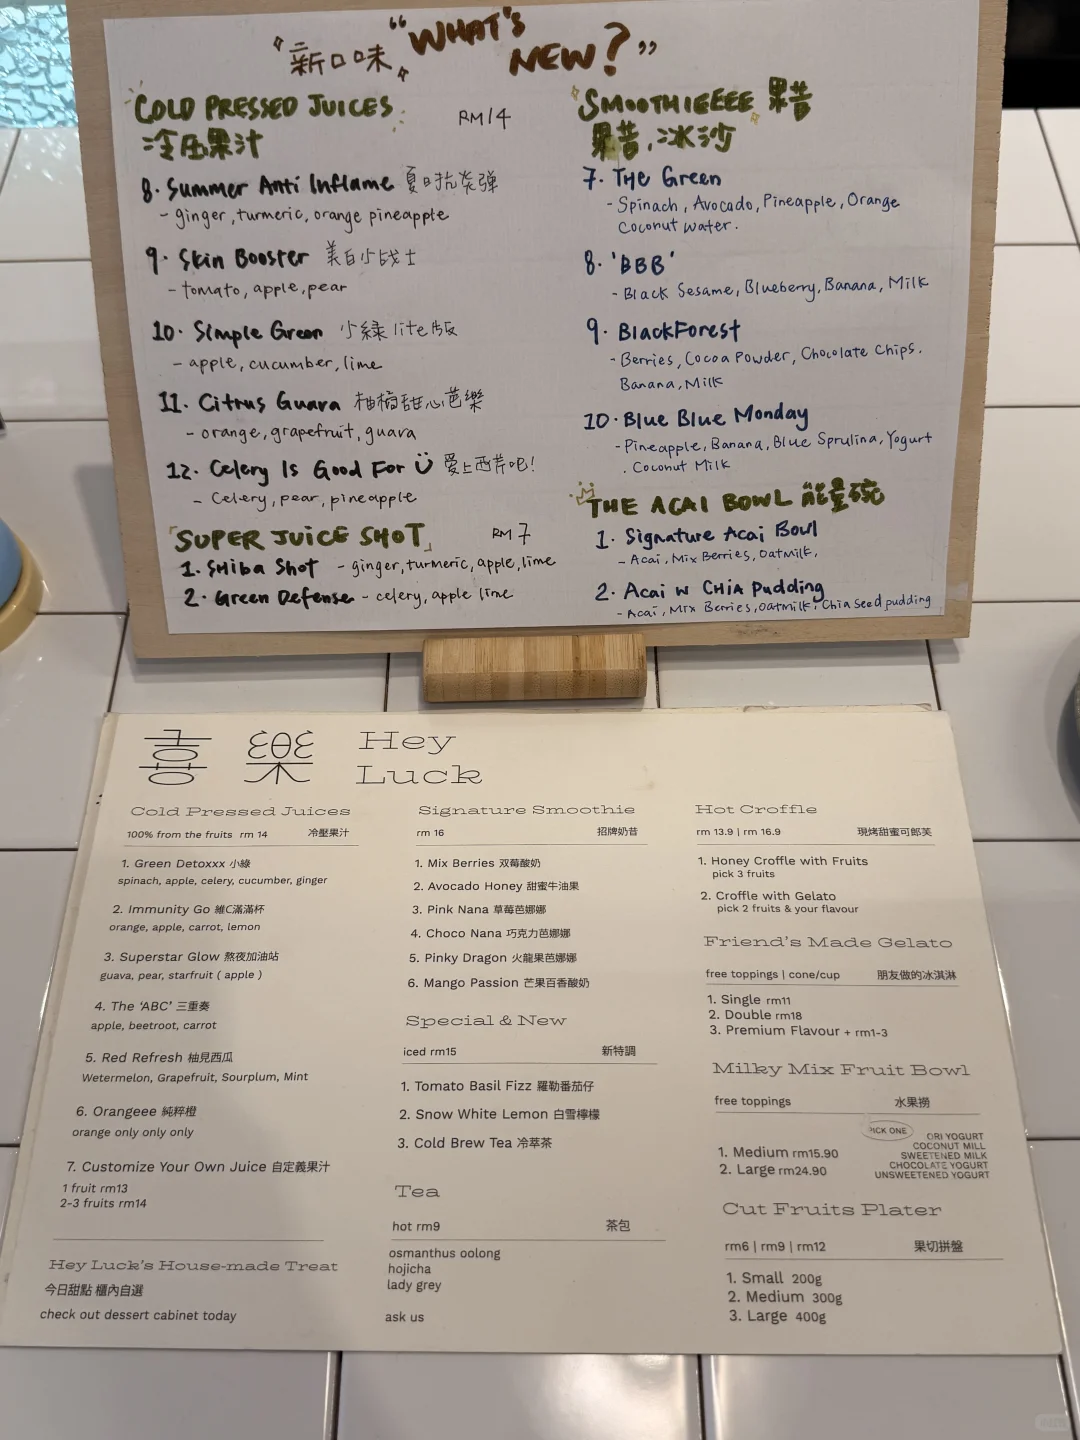 新口味 "WHAT'S NEW?"
COLD PRESSED JUICES RM14
冷压果汁
8. Summer Anti Inflame 夏日抗炎弹
- ginger, turmeric, orange pineapple
9. Skin Booster 美白小战士
- tomato, apple, pear
10. Simple Green 小綠 lite版
- apple, cucumber, lime
11. Citrus Guava 柚橘甜心芭樂
- orange, grapefruit, guava
12. Celery Is Good For Ü 爱上西芹吧!
- Celery, pear, pineapple
「SUPER JUICE SHOT」 RM7
1. SHiba Shot - ginger, turmeric, apple, lime
2. Green Defense - celery, apple lime
SMOOTHIEEEE 果昔
果昔,冰沙
7. THe Green
- Spinach, Avocado, Pineapple, Orange
Coconut water.
8. 'BBB'
- Black Sesame, Blueberry, Banana, Milk
9. BlackForest
- Berries, Cocoa Powder, Chocolate Chips.
Banana, Milk
10. Blue Blue Monday
- Pineapple, Banana, Blue Sprulina, Yogurt
. Coconut Milk
THE ACAI BOWL 能量碗
1. Signature Acai Bowl
- Acai, Mix Berries, Oatmilk,
2. Acai w CHIA Pudding
- Acai, Mix Berries, Oatmilk, Chia seed pudding
喜樂 Hey
Luck
Cold Pressed Juices
100% from the fruits rm 14 冷壓果汁
1. Green Detoxxx 小綠
spinach, apple, celery, cucumber, ginger
2. Immunity Go 維C滿滿杯
orange, apple, carrot, lemon
3. Superstar Glow 熬夜加油站
guava, pear, starfruit ( apple )
4. The 'ABC' 三重奏
apple, beetroot, carrot
5. Red Refresh 柚見西瓜
Wetermelon, Grapefruit, Sourplum, Mint
6. Orangeee 純粹橙
orange only only only
7. Customize Your Own Juice 自定義果汁
1 fruit rm13
2-3 fruits rm14
Hey Luck's House-made Treat
今日甜點 櫃內自選
check out dessert cabinet today
Signature Smoothie
rm 16 招牌奶昔
1. Mix Berries 双莓酸奶
2. Avocado Honey 甜蜜牛油果
3. Pink Nana 草莓芭娜娜
4. Choco Nana 巧克力芭娜娜
5. Pinky Dragon 火龍果芭娜娜
6. Mango Passion 芒果百香酸奶
Special & New
iced rm15 新特調
1. Tomato Basil Fizz 羅勒番茄仔
2. Snow White Lemon 白雪檸檬
3. Cold Brew Tea 冷萃茶
Tea
hot rm9 茶包
osmanthus oolong
hojicha
lady grey
ask us
Hot Croffle
rm 13.9 | rm 16.9 現烤甜蜜可郎芙
1. Honey Croffle with Fruits
pick 3 fruits
2. Croffle with Gelato
pick 2 fruits & your flavour
Friend's Made Gelato
free toppings | cone/cup 朋友做的冰淇淋
1. Single rm11
2. Double rm18
3. Premium Flavour + rm1-3
Milky Mix Fruit Bowl
free toppings 水果撈
PICK ONE
ORI YOGURT
COCONUT MILL
SWEETENED MILK
CHOCOLATE YOGURT
UNSWEETENED YOGURT
1. Medium rm15.90
2. Large rm24.90
Cut Fruits Plater
rm6 | rm9 | rm12 果切拼盤
1. Small 200g
2. Medium 300g
3. Large 400g